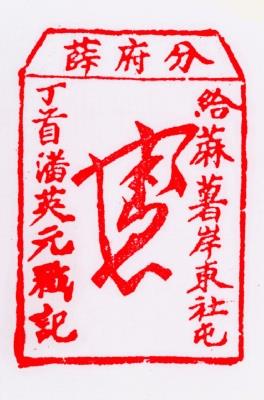 分府薛
給蔴薯岸東社屯
丁首潘英元戳記